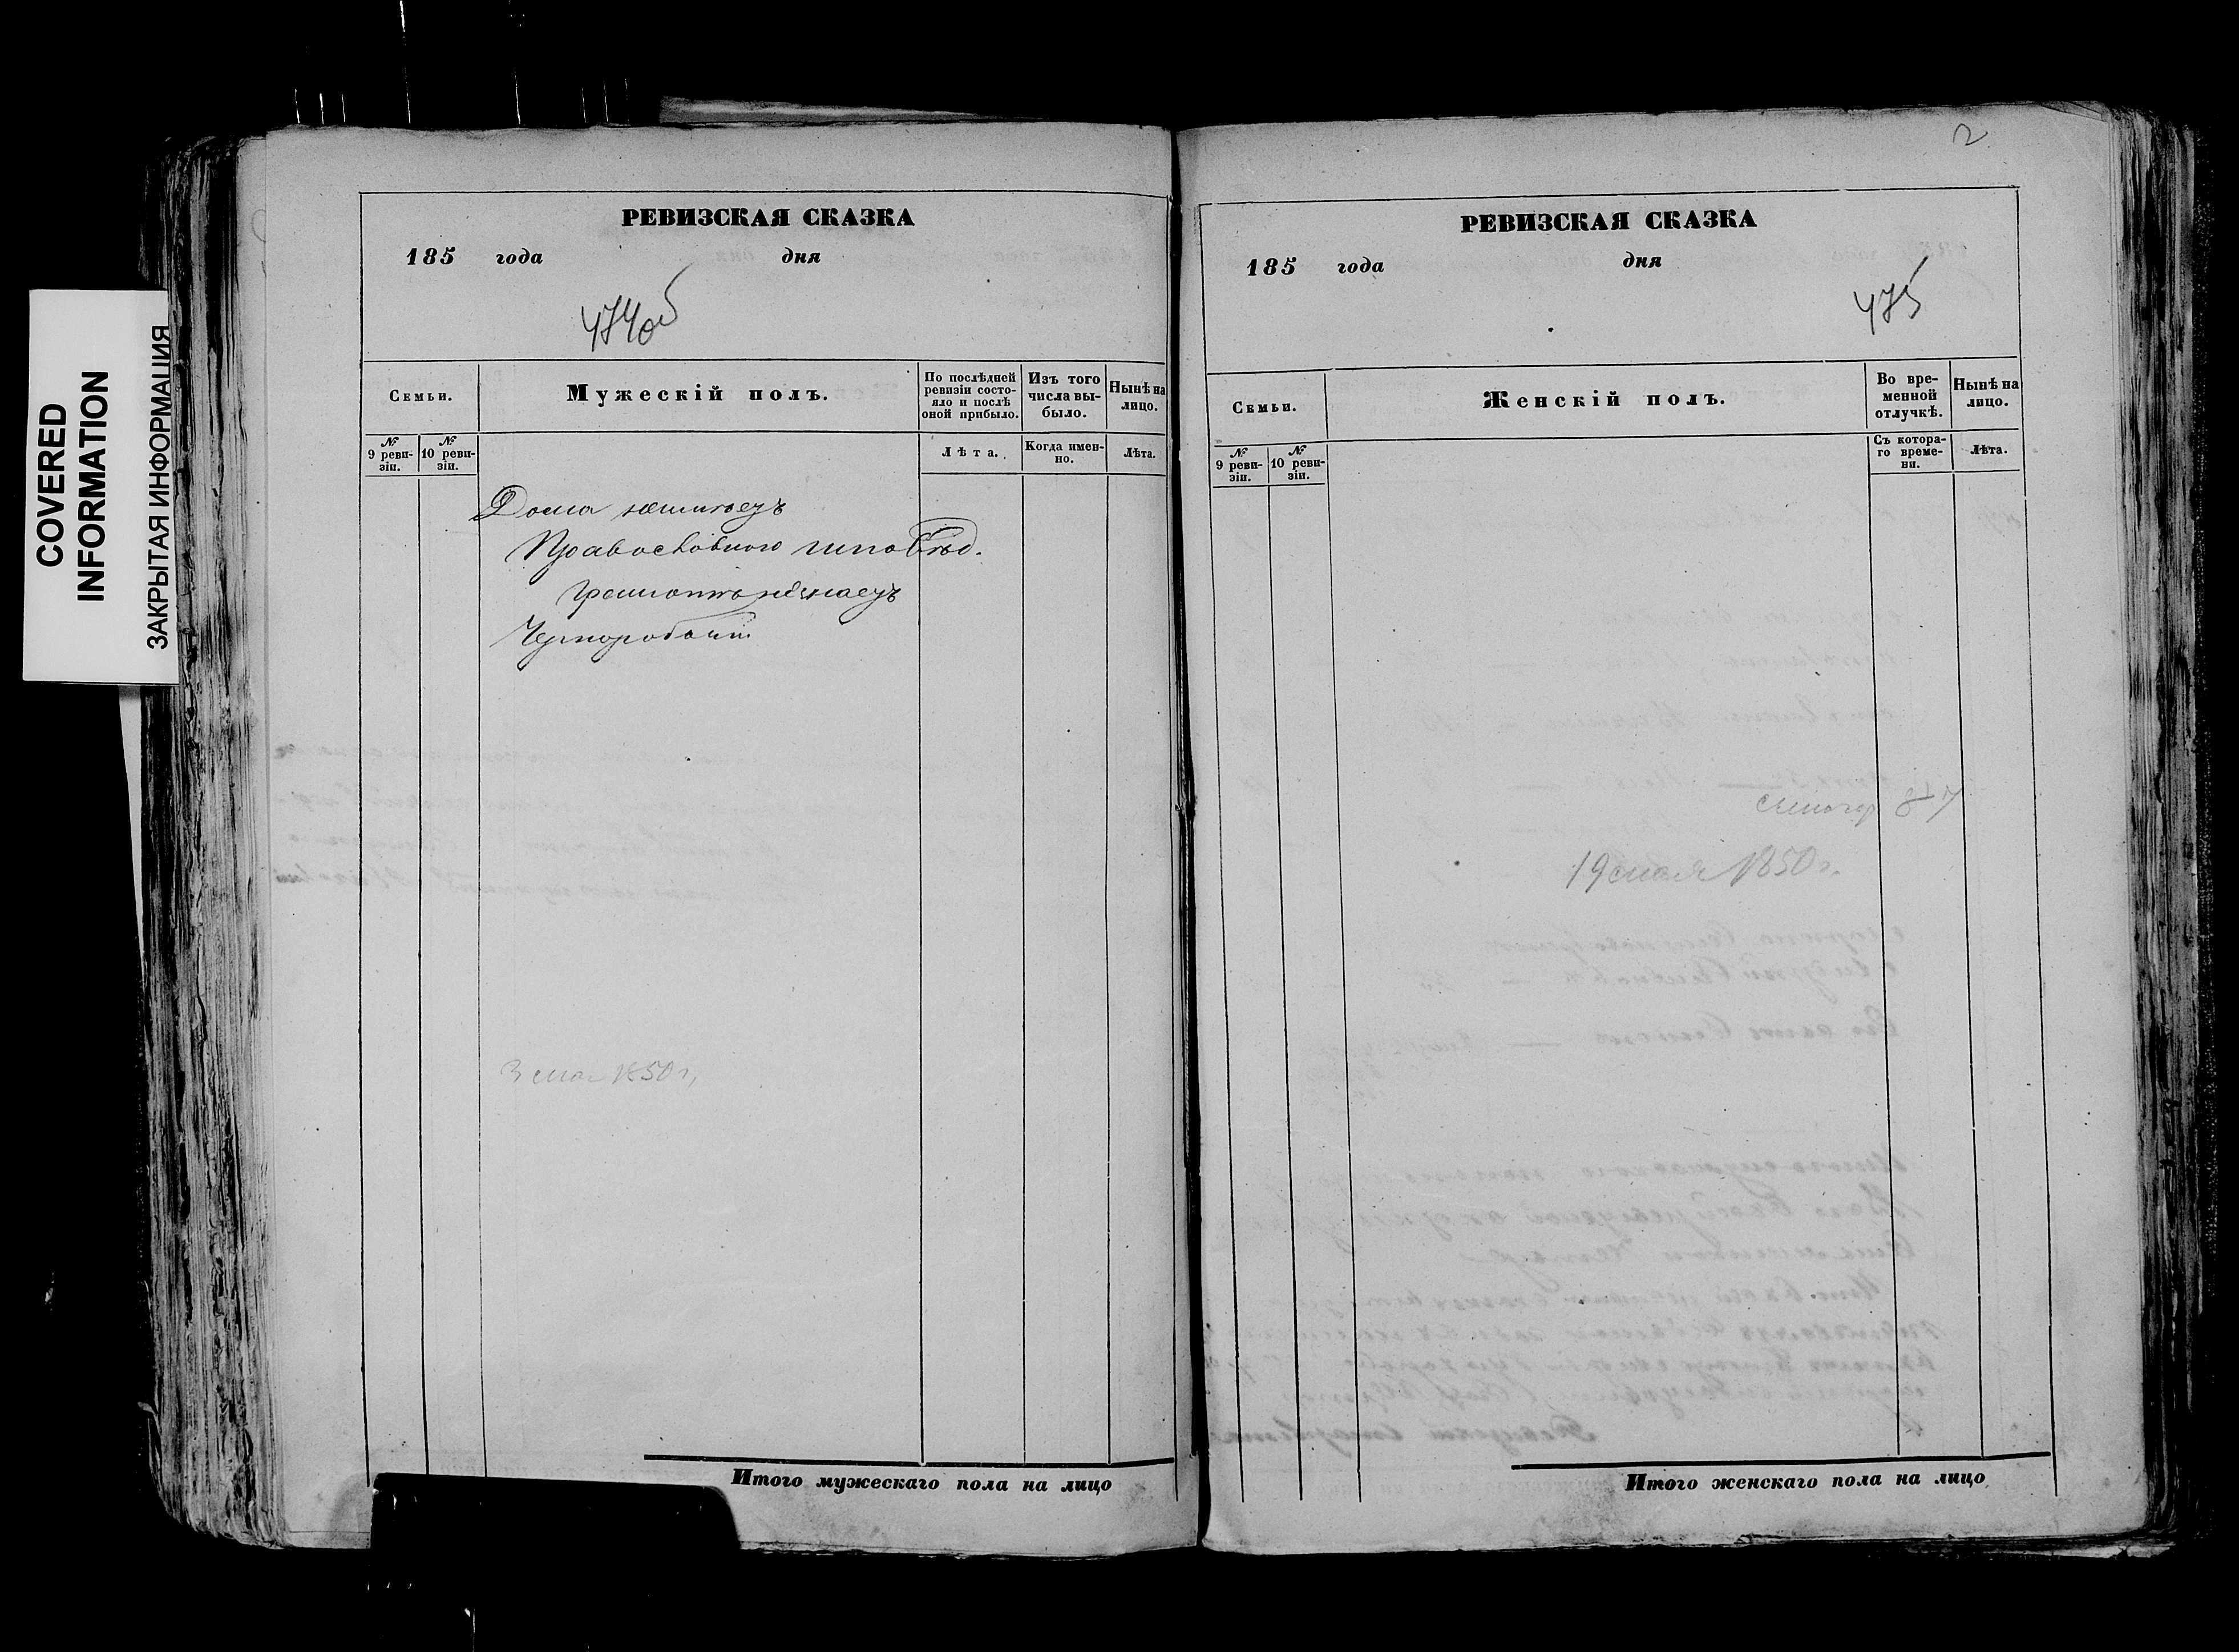 COVERED
INFORMATION
ЗАКРЫТАЯ ИНФОРМАЦИЯ
РЕВИЗСКАЯ СКАЗКА
185 года дня
474об
Семьи.
Мужескій полъ.
По послѣдней
ревизіи состо-
яло и послѣ
оной прибыло.
Изъ того
числа вы-
было.
Нынѣ на
лицо.
№
9 реви-
зіи.
№
10 реви-
зіи.
Лѣта.
Когда имен-
но.
Лѣта.
Дома
Православного исповѣд.
грамотѣ не знаетъ
Чернорабочий
3 мая 1850 г.
Итого мужескаго пола на лицо
2
РЕВИЗСКАЯ СКАЗКА
185 года дня
475
Семьи.
Женскій полъ.
Во вре-
менной
отлучкѣ.
Нынѣ на
лицо.
№
9 реви-
зіи.
№
10 реви-
зіи.
Съ котора-
го време-
ни.
Лѣта.
19 мая 1850 г.
Итого женскаго пола на лицо